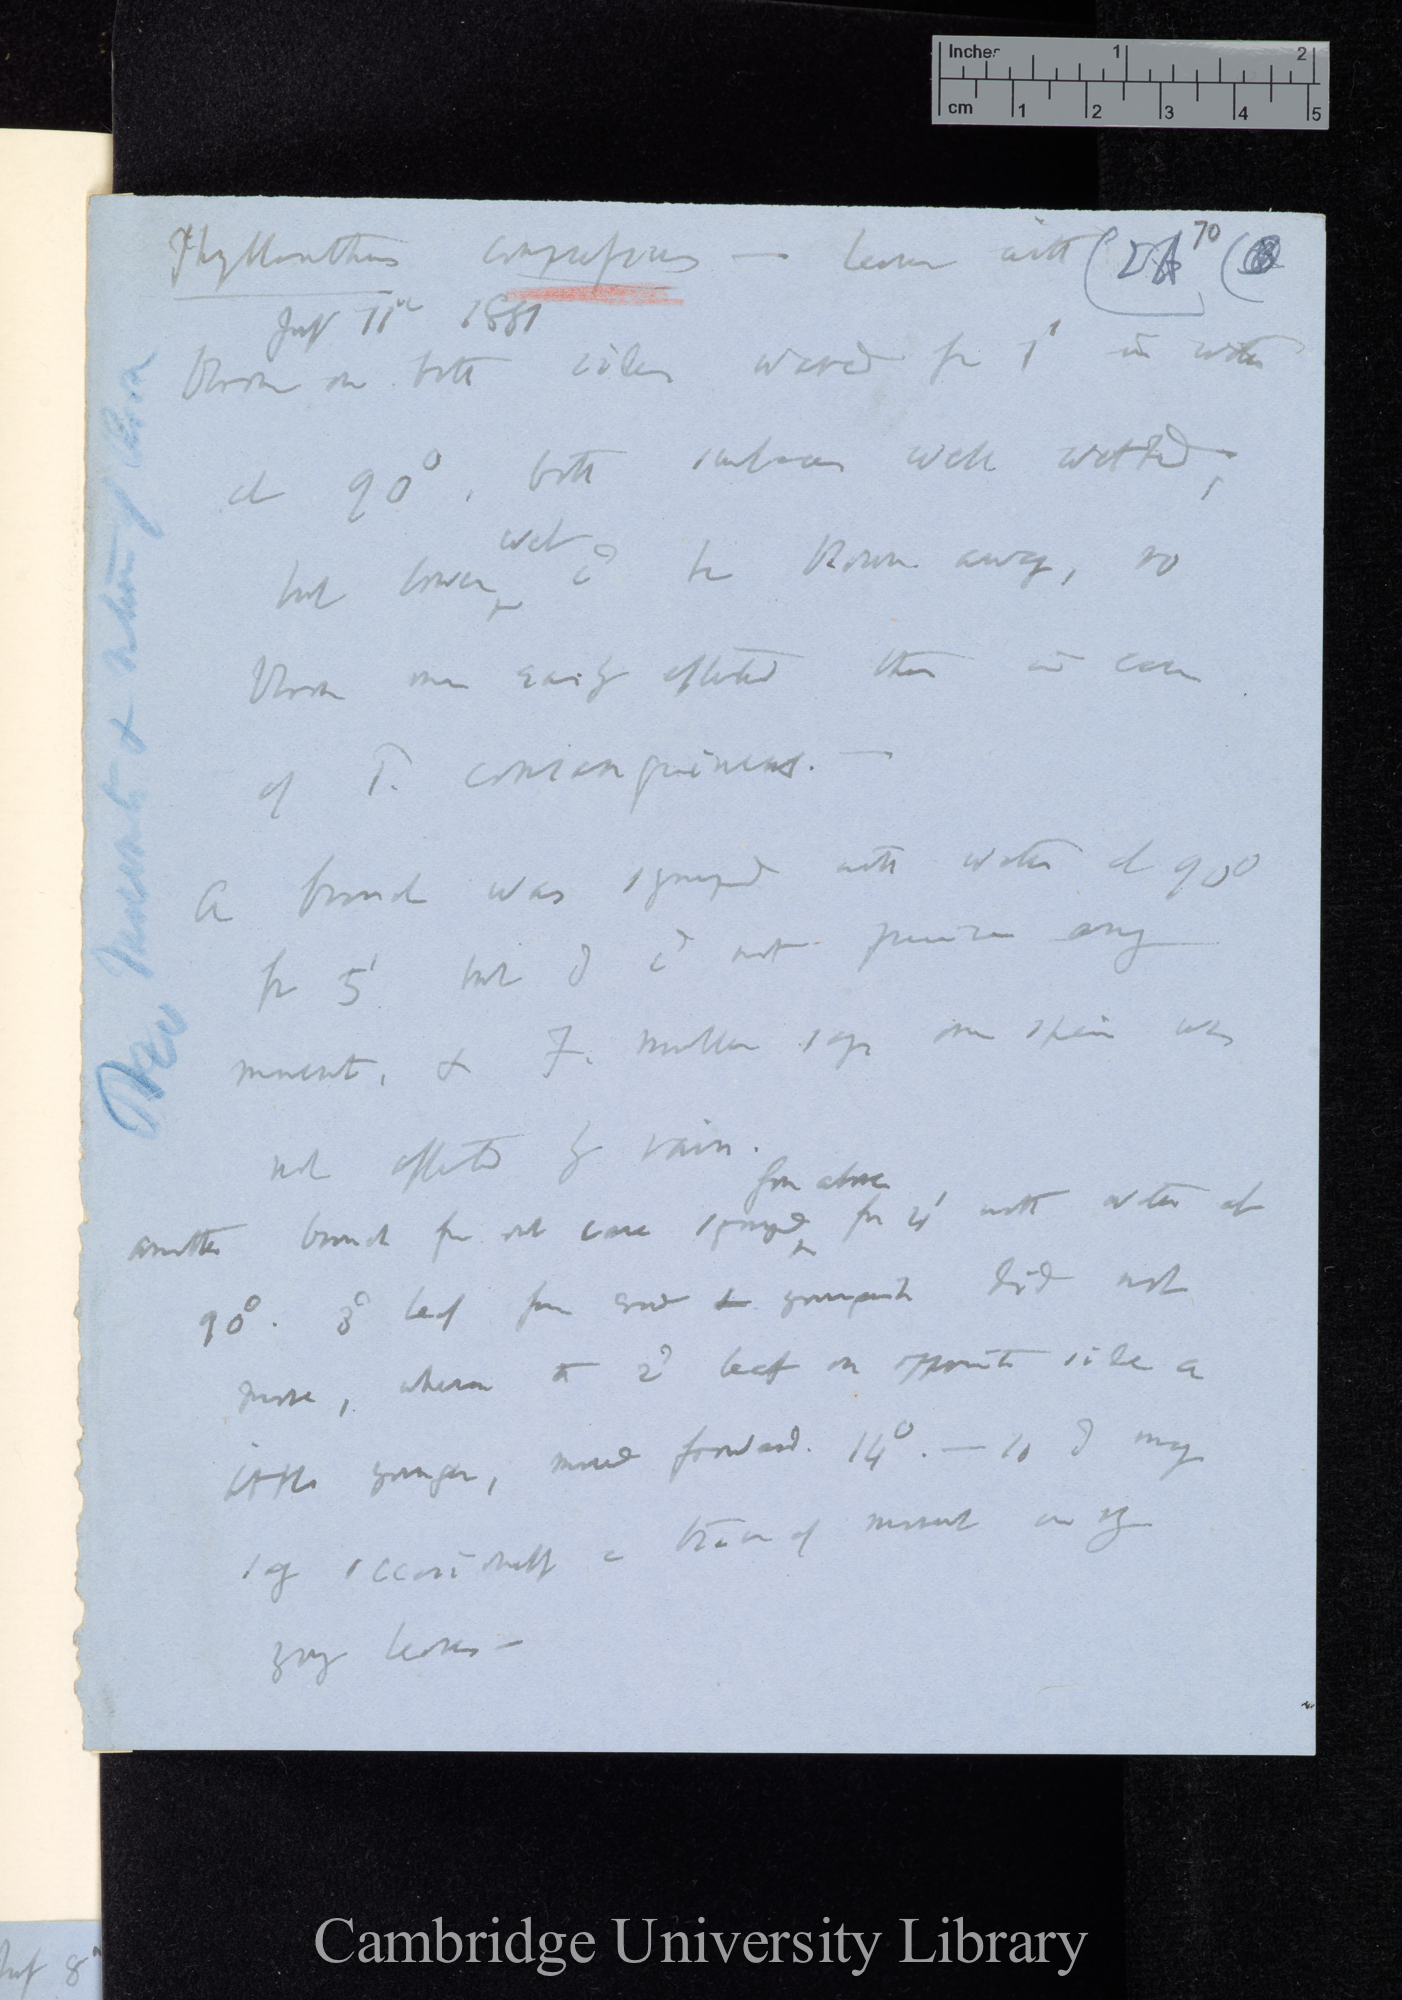 Inches 1 2
cm 1 2 3 4 5
70
Phyllanthus compressus — Leaves with
July 11th 1881
Bloom on both sides waved for 1' in water
at 90°, both surfaces well wetted,
but lower wet cd be blown away, so
Bloom more easily affected than in case
of P.
A branch was syringed with water at 90°
for 5' but I cd not perceive any
movement, & F. Muller says one species was
not affected by rain.
from above
Another branch from hot house syringed for 4' with water at
90°. 3d leaf from end did not
move, whereas the 2d leaf on opposite side a
little younger, moved forward 14°. — so I may
say occasionally a trace of movement in
young leaves —
New Movements & relation of Bloom
July 8th
Cambridge University Library